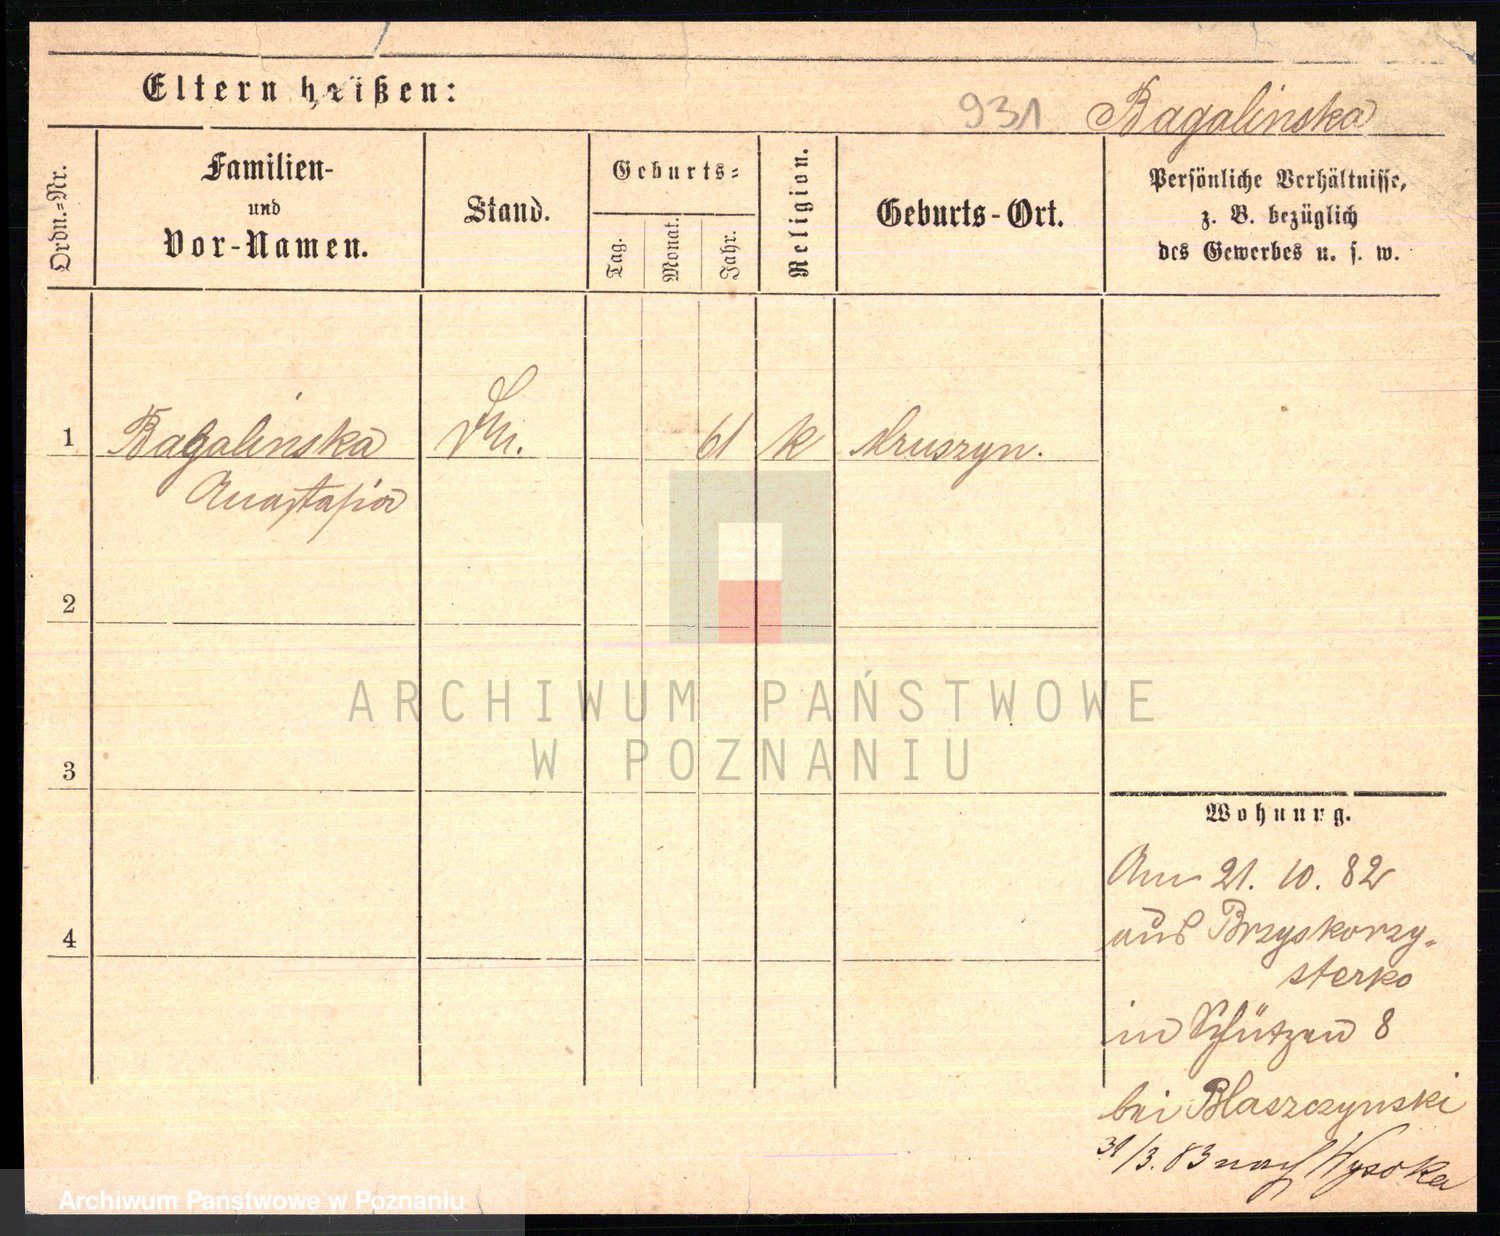 Eltern heißen:
931 Bagalinska
Ordn.-Nr.
Familien-
und
Vor-Namen.
Stand.
Geburts-
Tag.
Monat.
Jahr.
Religion.
Geburts-Ort.
Persönliche Verhältnisse,
z. B. bezüglich
des Gewerbes u. s. w.
1 Bagalinska 61 k
Anastasia
2
3
4
Wohnung.
Am 21. 10. 82
aus Brzyskorzy-
sterko
in Schützen 8
bei Blaszczynski
31/3. 83 nach Wysoka
ARCHIWUM PAŃSTWOWE
W POZNANIU
Archiwum Państwowe w Poznaniu